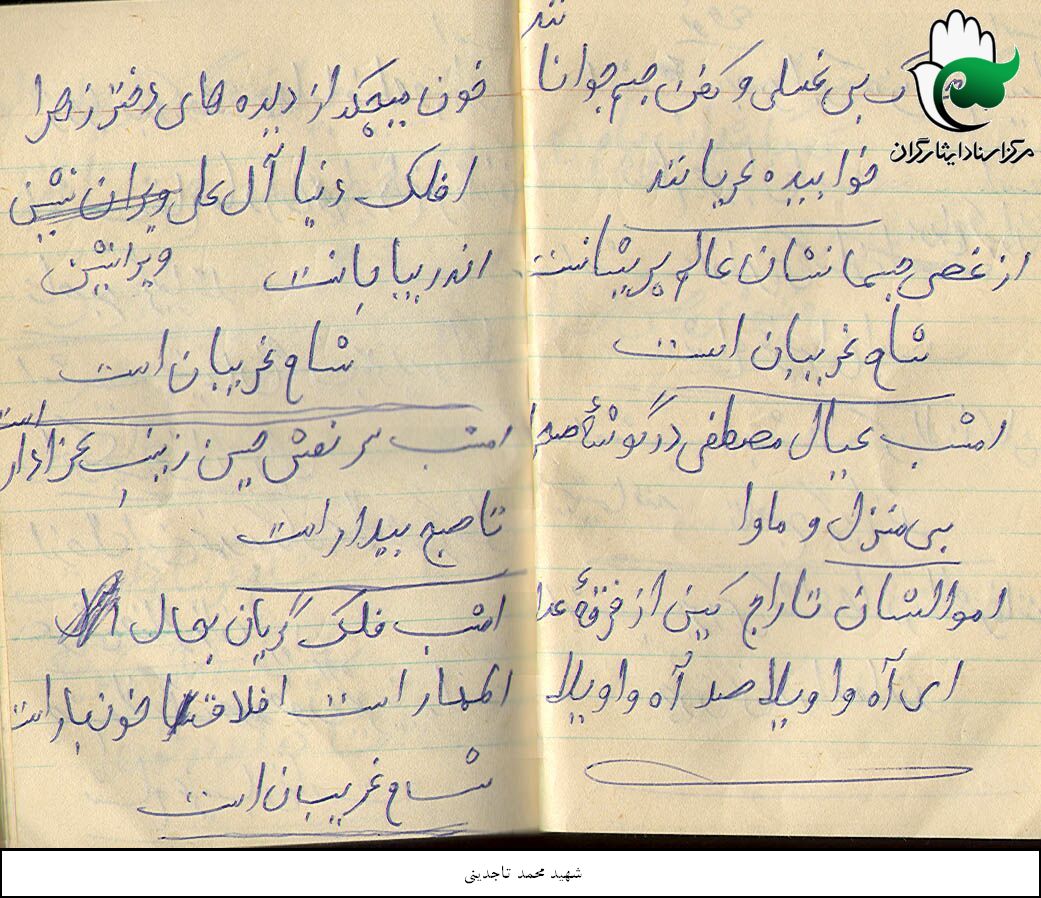 نند
بی غسل و کفن جسم جوانا
خوابیده عریانند
از غصه جسمانشان عالم پریشانست
شام غریبان است
امشب عیال مصطفی در گوشهٔ صحرا
بی منزل و ماوا
اموالشان تاراج کین از فرقهٔ عدا
ای آه واویلا صد آه واویلا
خون میچکد از دیده های دختر زهرا
افلک دنیا آل علی ویران نشین
اندر بیابانست ویرانشین
شام غریبان است
امشب سر نعش حسین زینب عزادار است
تا صبح بیدار است
امشب فلک گریان بحال
اطهار است افلاق خون بار است
شام غریبان است
مرکز اسناد ایثارگران
شهید محمد تاجدینی